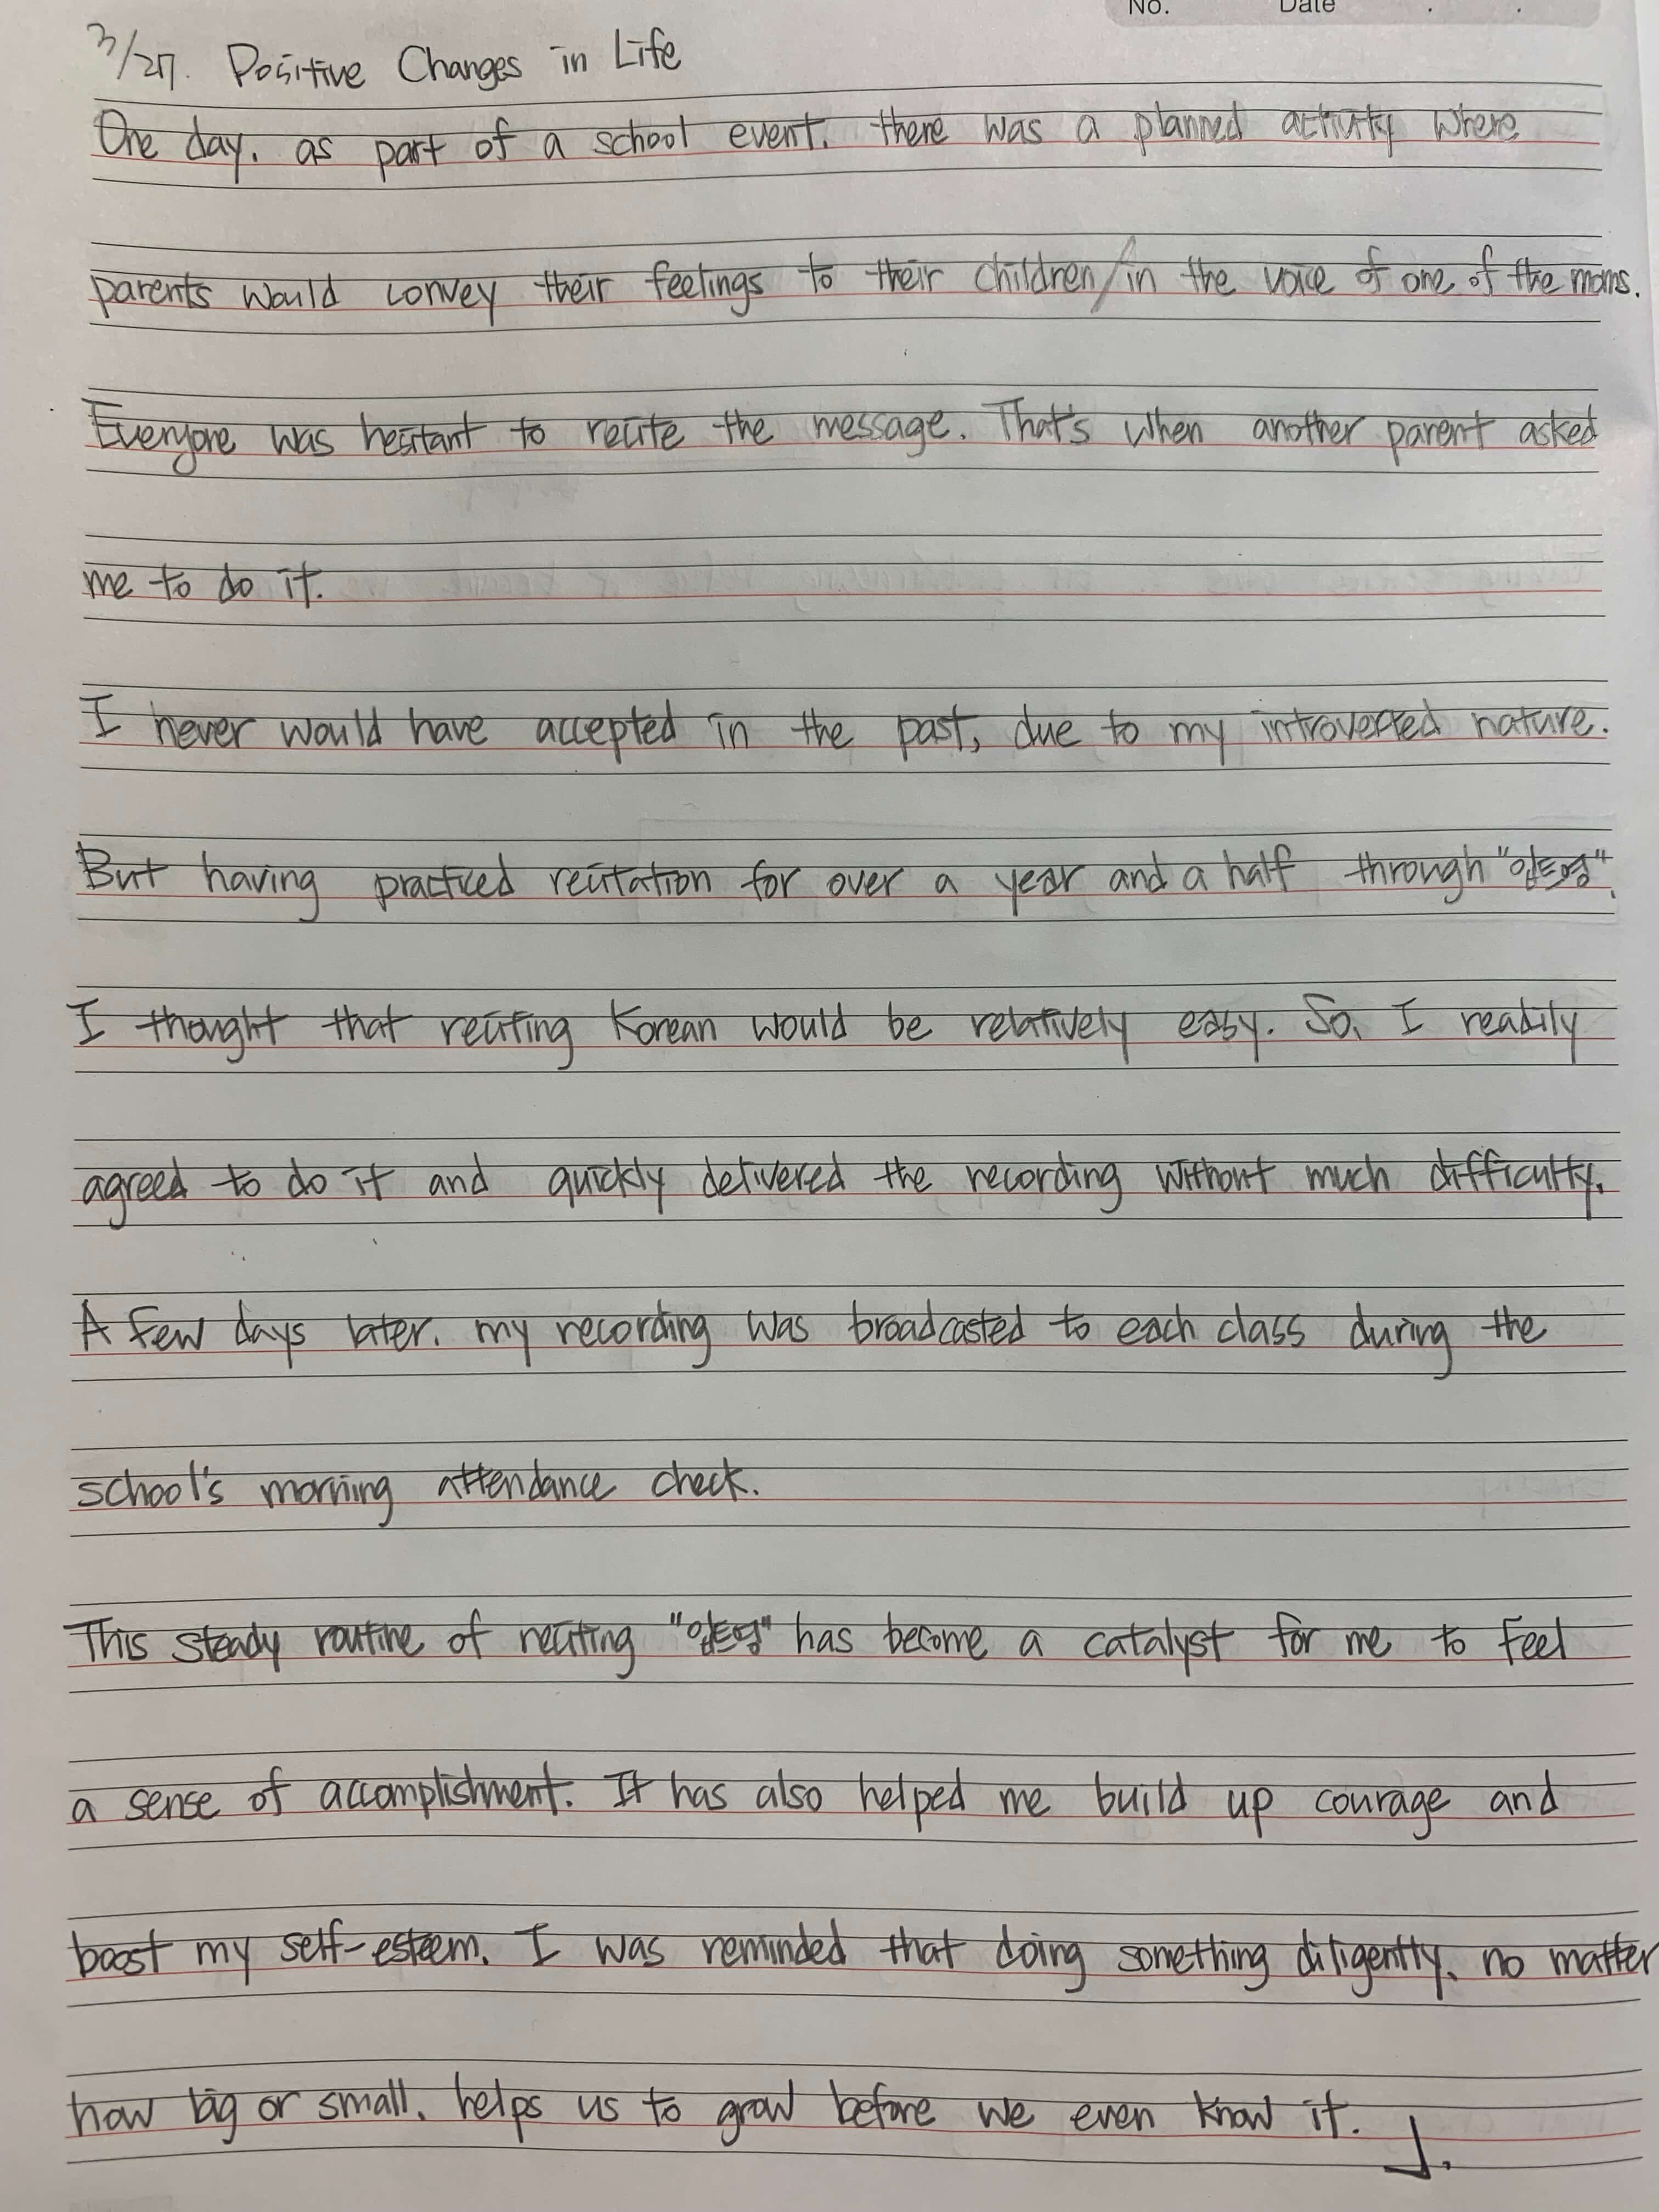 No. Date . .
3/27. Positive Changes in Life
One day, as part of a school event, there was a planned activity where
parents would convey their feelings to their children/in the voice of one of the moms.
Everyone was hesitant to recite the message. That's when another parent asked
me to do it.
I never would have accepted in the past, due to my introverted nature.
But having practiced recitation for over a year and a half through "입트영",
I thought that reciting Korean would be relatively easy. So, I readily
agreed to do it and quickly delivered the recording without much difficulty.
A few days later, my recording was broadcasted to each class during the
school's morning attendance check.
This steady routine of reciting "입트영" has become a catalyst for me to feel
a sense of accomplishment. It has also helped me build up courage and
boost my self-esteem. I was reminded that doing something diligently, no matter
how big or small, helps us to grow before we even know it.